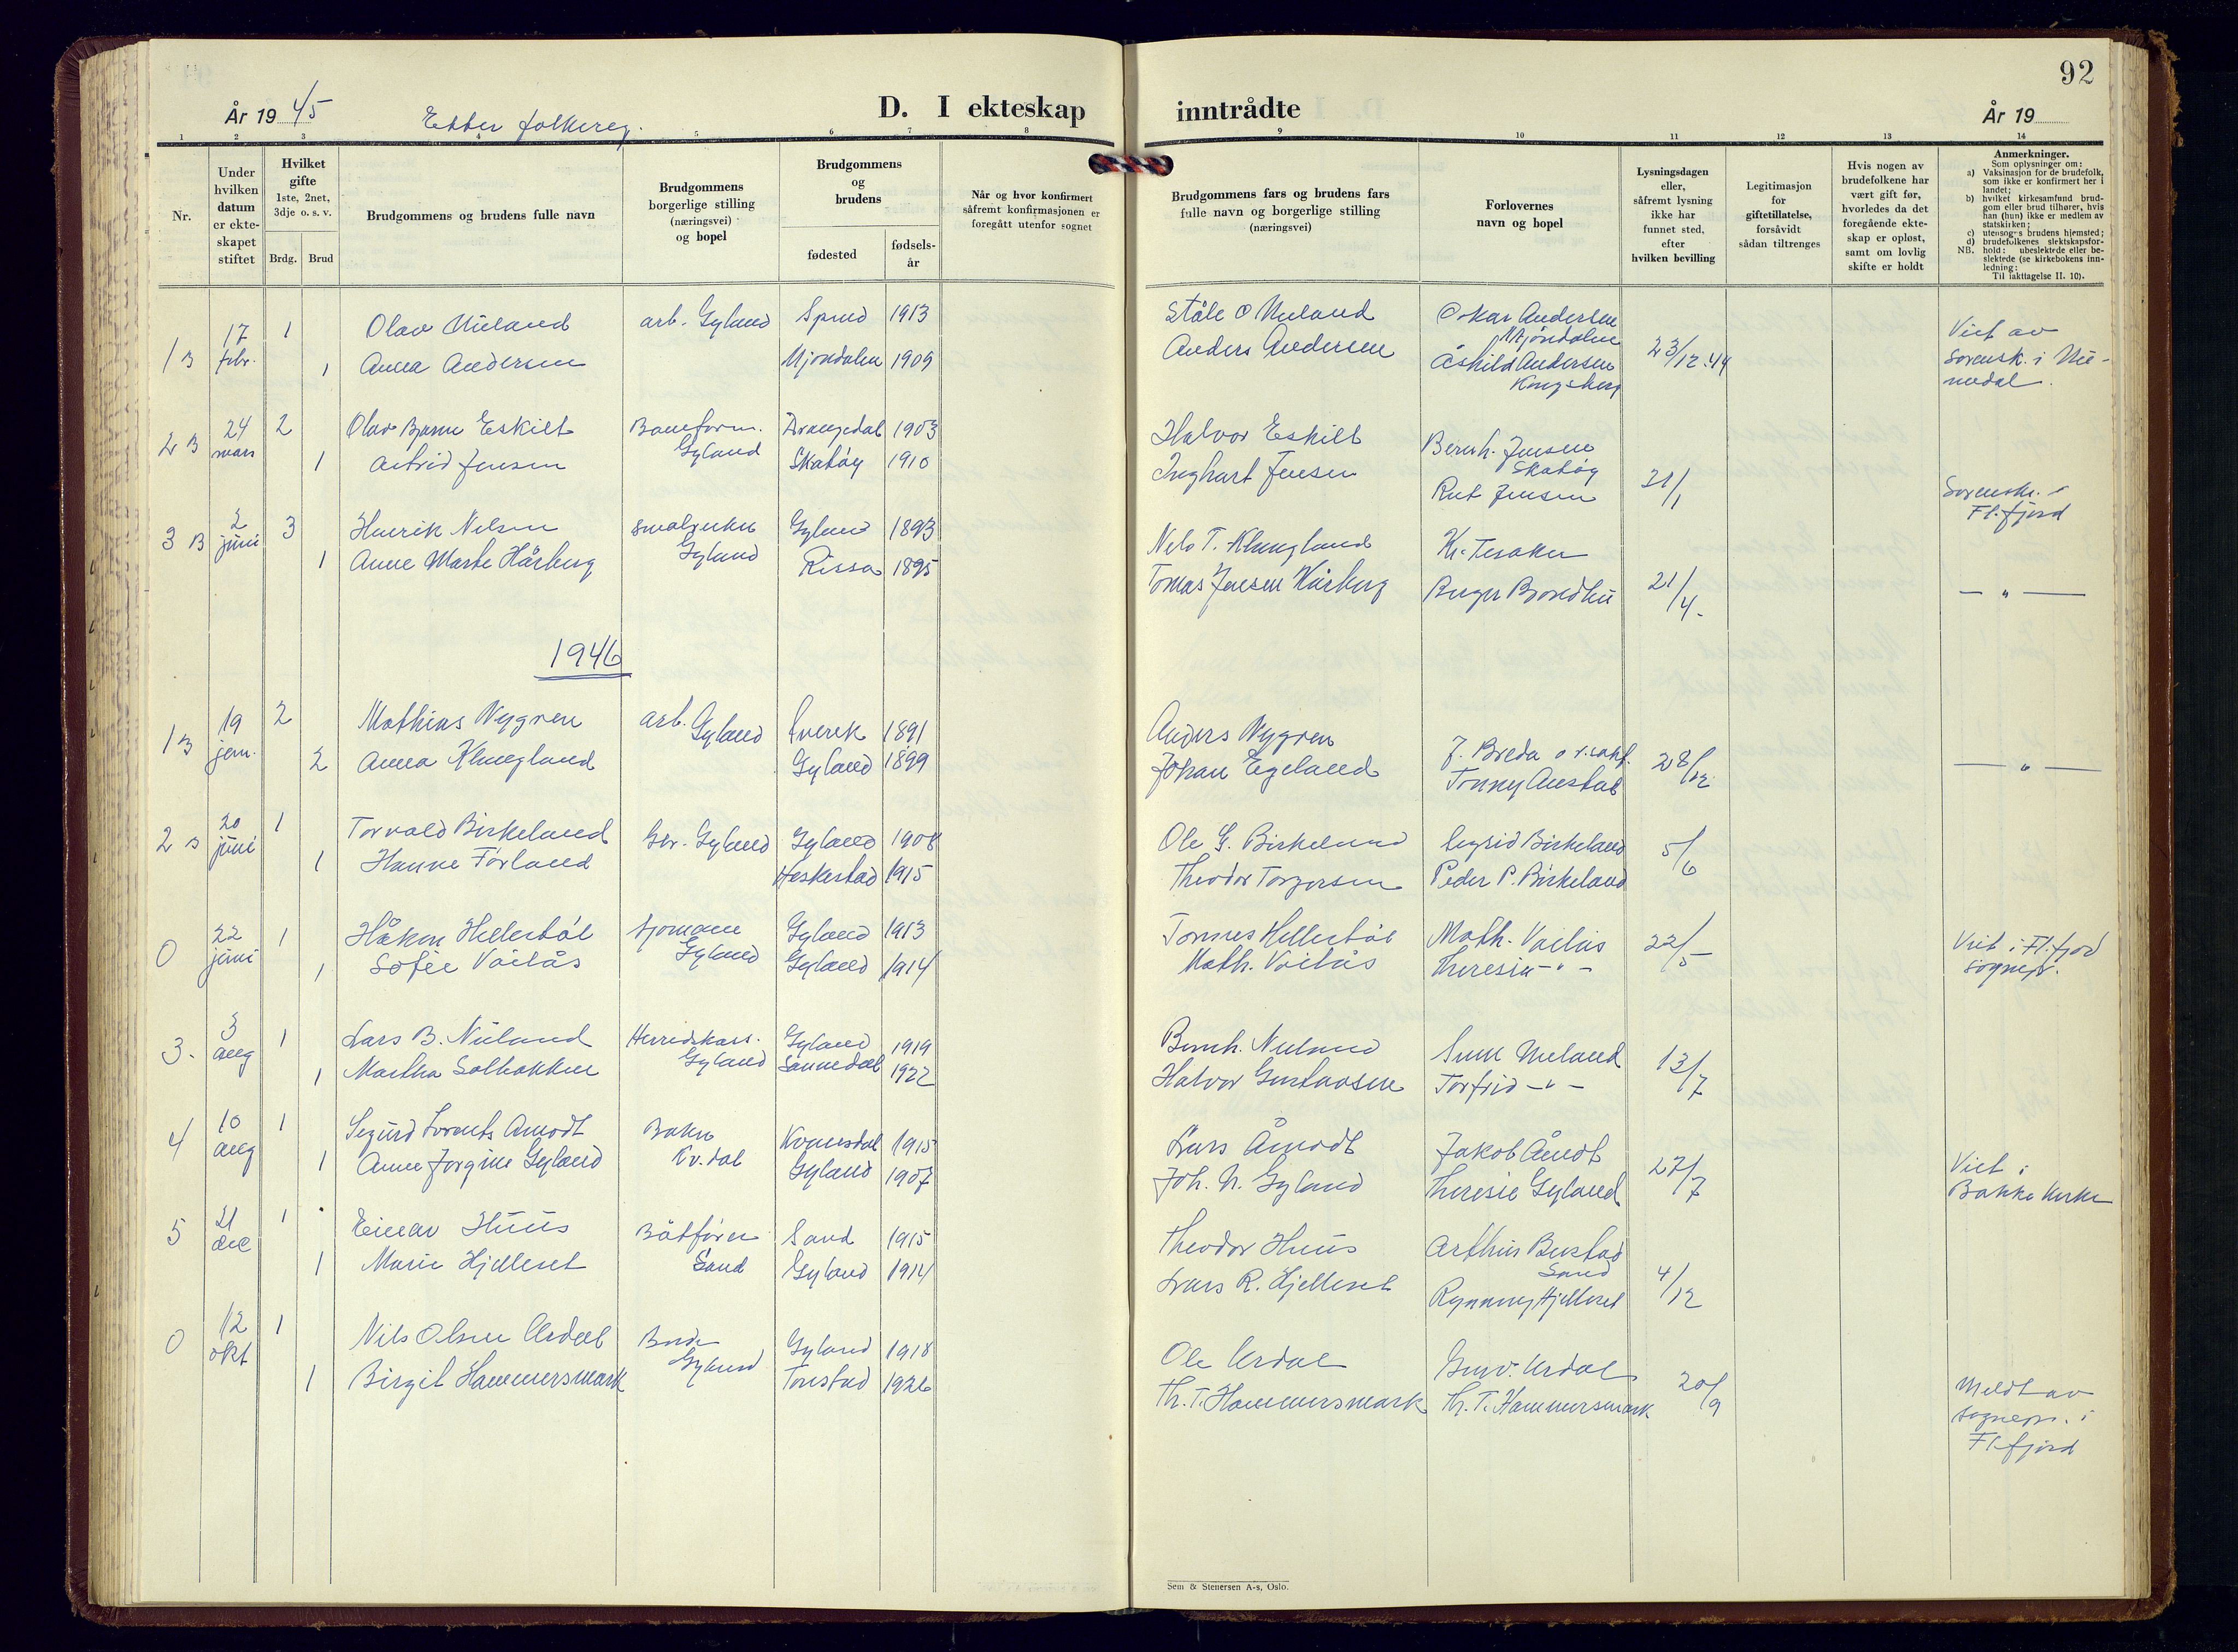 92
År 1945
Etter folkereg.
D. I ekteskap inntrådte
År 19
1 2 3 4 5 6 7 8 9 10 11 12 13 14
Nr.
Under hvilken datum er ekteskapet stiftet
Hvilket gifte 1ste, 2net, 3dje o. s. v.
Brdg. Brud
Brudgommens og brudens fulle navn
Brudgommens borgerlige stilling (næringsvei) og bopel
Brudgommens og brudens
fødested
fødsels-år
Når og hvor konfirmert såfremt konfirmasjonen er foregått utenfor sognet
Brudgommens fars og brudens fars fulle navn og borgerlige stilling (næringsvei)
Forlovernes navn og bopel
Lysningsdagen eller, såfremt lysning ikke har funnet sted, efter hvilken bevilling
Legitimasjon for giftetillatelse, forsåvidt sådan tiltrenges
Hvis nogen av brudefolkene har vært gift før, hvorledes da det foregående ekteskap er opløst, samt om lovlig skifte er holdt
Anmerkninger.
Som oplysninger om:
a) Vaksinasjon for de brudefolk, som ikke er konfirmert her i landet;
b) hvilket kirkesamfund brudgom eller brud tilhører, hvis han (hun) ikke er medlem av statskirken;
c) utensogns brudens hjemsted;
d) brudefolkenes slektskapsforhold: ubeslektede eller beslektede (se kirkebokens innledning:
NB. Til iakttagelse II. 10).
1 B 17 febr. 1 Olav Nuland arb. Gyland 1913 Ståle O Nuland Oskar Andersen Mjøndalen
1 Anna Andersen Mjøndalen 1909 Anders Andersen Åshild Andersen Kongsberg 23/12.44 Viet av Sorensk. i Numedal.
2 B 24 mars 2 Olav Bjarne Eskilt Baneform. Gyland Drangedal 1903 Halvor Eskilt Bernh. Jensen Skatøy
1 Astrid Jensen Skatøy 1910 Inghart Jensen Rut Jensen 31/1 Sorenskr. i Fl.fjord
3 B 2 juni 3 Henrik Nelsen Gyland Gyland 1893 Nels T. Klungland Kr. Tesaker
1 Anne Marte Hårberg Rissa 1895 Tomas Jensen Hårberg Birger Brondbu 21/4. — " —
1946
1 B 19 jan. 2 Mathias Nygren arb. Gyland Sverek 1891 Anders Nygren J. Breda
2 Anna Klungland Gyland 1899 Johan Egeland Tonny Austad 28/12 — " —
2 20 juni 1 Torvald Birkeland Gbr. Gyland Gyland 1908 Ole G. Birkeland Ingrid Birkeland 5/6
1 Hanne Førland Heskestad 1915 Theodor Torgersen Peder P. Birkeland
0 22 juni 1 Håkon Hellestøl sjømann Gyland Gyland 1913 Tønnes Hellestøl Math. Voilås 22/5 Viet i Fl.fjord sognepr.
1 Sofie Voilås Gyland 1914 Math. Voilås Theresia - " -
3. 3 aug 1 Lars B. Nuland Herredskass. Gyland Gyland 1919 Bernh. Nuland Nuland 13/7
1 Martha Solbakken Sannedal 1922 Halvor Gustavsen Torfrid - " -
4 10 aug 1 Sigurd Lorents Åmodt Baker Kv.dal Kvinesdal 1915 Lars Åmodt Jakob Åmodt 27/7
1 Anne Jorgine Gyland Gyland 1907 Joh. N. Gyland Theresie Gyland Viet i Bakke kirke
5 21 des 1 Einar Huus Båtfører Sand Sand 1915 Theodor Huus Arthur Bustad Sand
1 Marie Hjelleset Gyland 1914 Lars R. Hjelleset Rønnaug Hjelleset 4/12
0 12 okt 1 Nils Olsen Urdal Bonde Gyland Gyland 1918 Ole Urdal Gunv. Urdal 20/9
1 Birgit Hammersmark Tonstad 1926 Th. T. Hammersmark Th. T. Hammersmark Meldt av sognepr. i Fl.fjord
Sem & Stenersen A-s, Oslo.